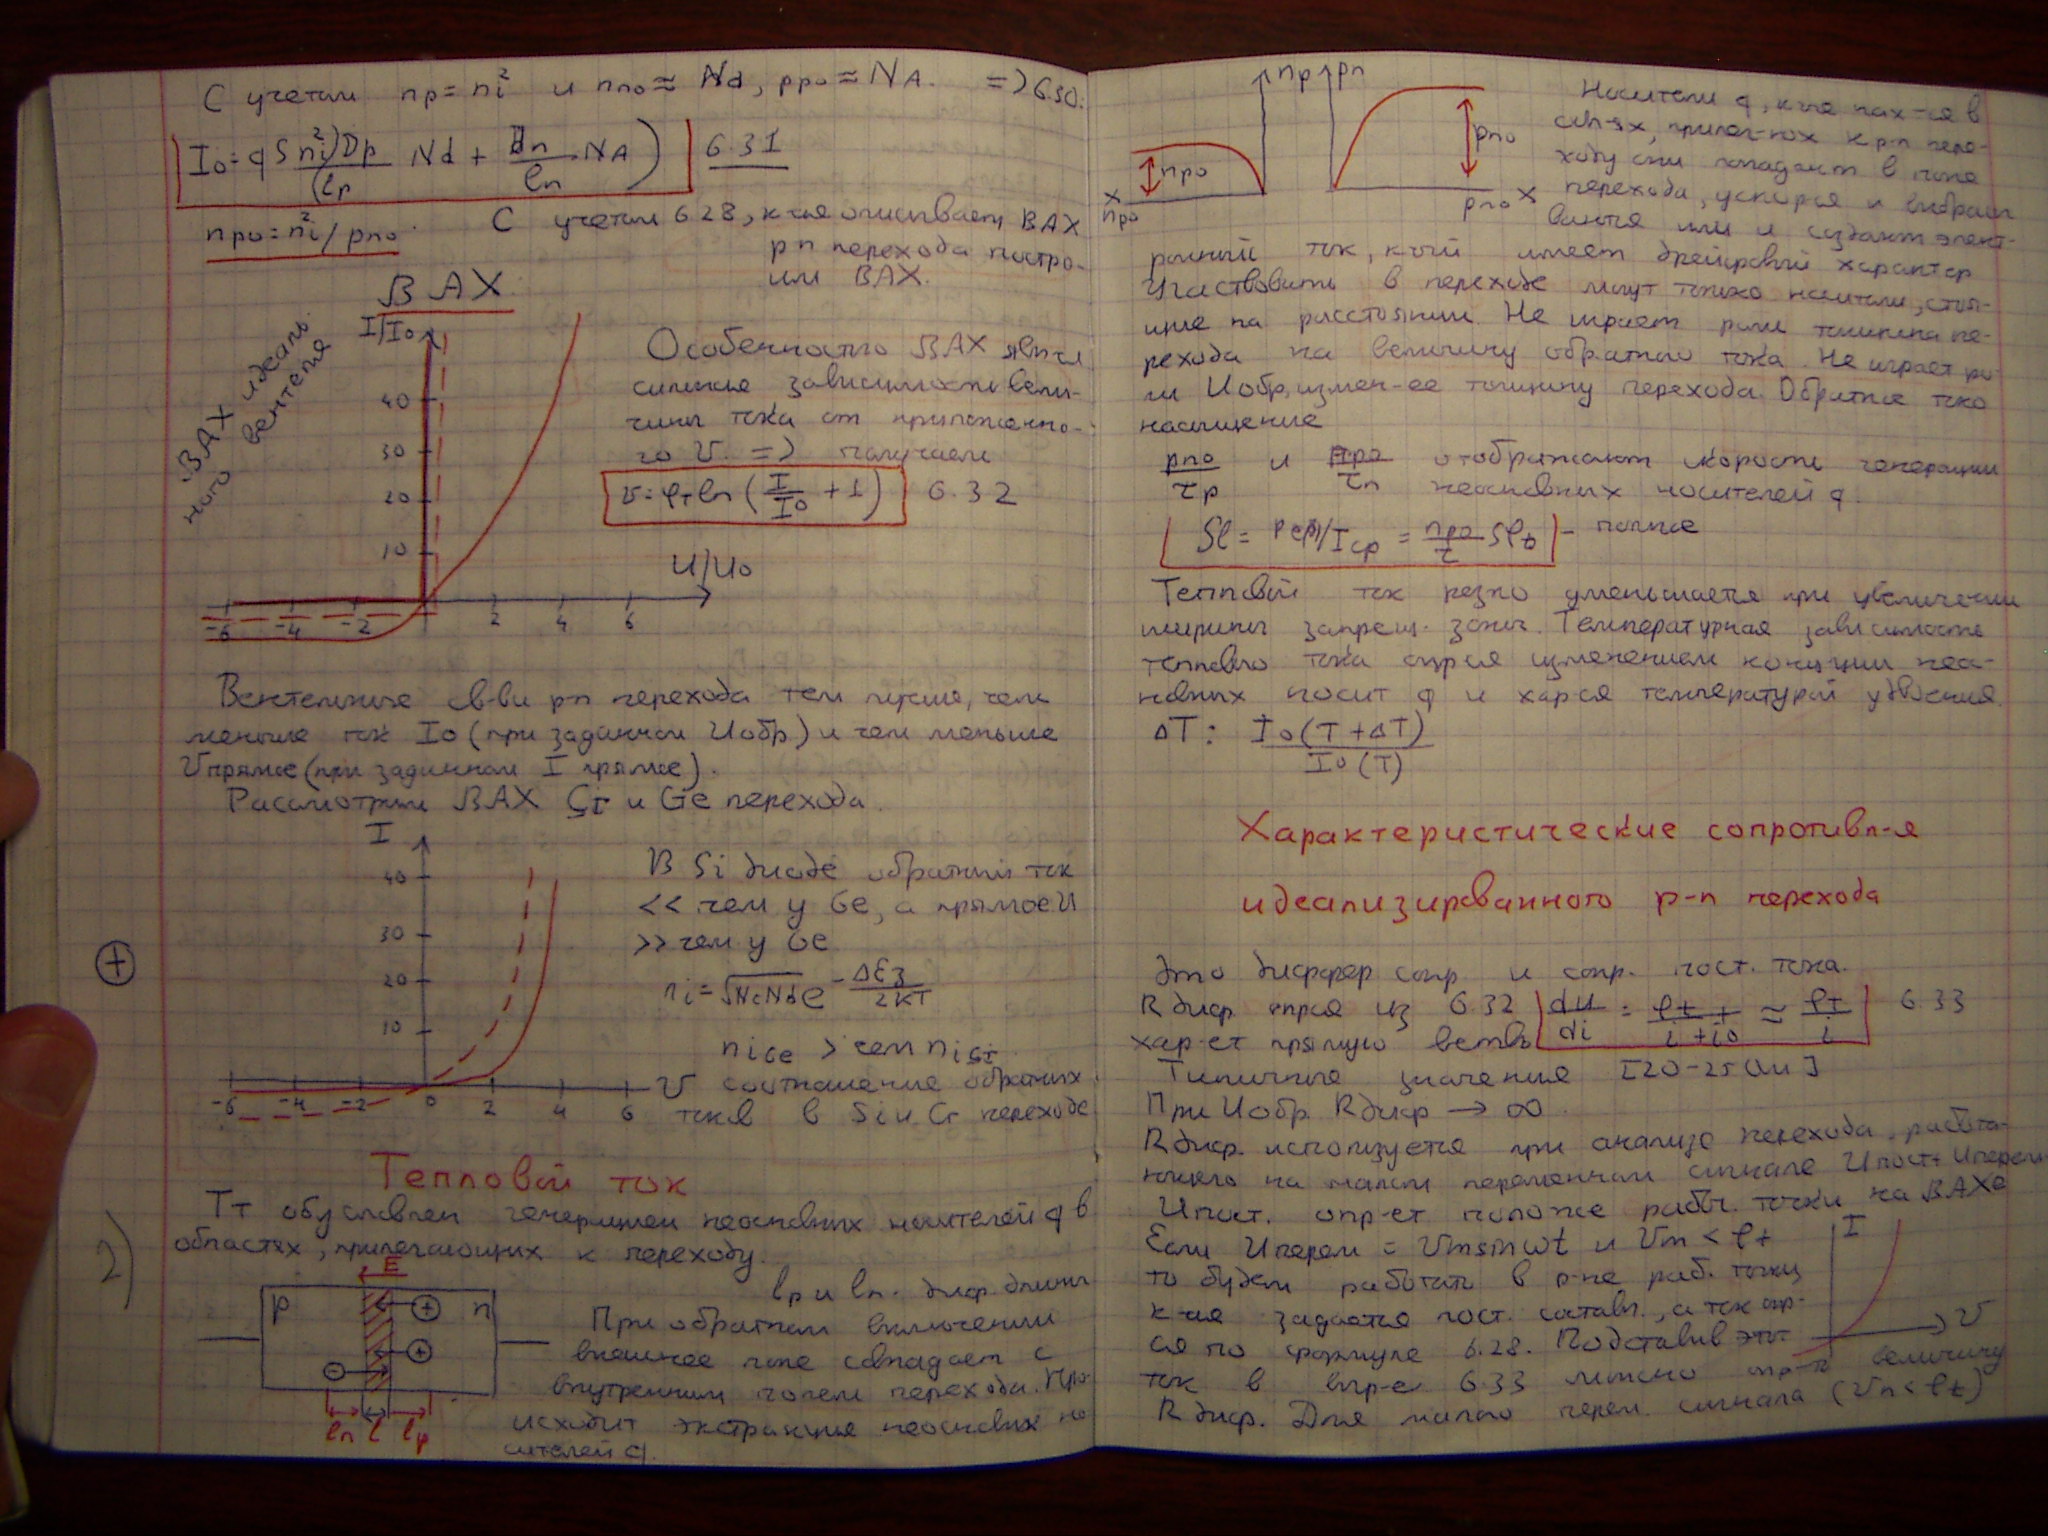 С учетом np = ni² и nno ≈ Nd, ppo ≈ NA. => 6.30.
I0 = q S ni² ( Dp / lp Nd + Dn / ln · NA ) 6.31
npo = ni² / pno. С учетом 6.28, к-ая описывает ВАХ
p n перехода постро-
им ВАХ.
ВАХ
ВАХ идеаль
ного вентеля
I/I0
40
30
20
10
-6 -4 -2 2 4 6
U/U0
Особенностью ВАХ явл-ся
сильные зависимость вели-
чины тока от приложенно-
го U. => получаем
U = φт ln ( I/I0 + 1 ) 6.32
Вентельные св-ва p n перехода тем лучше, чем
меньше ток I0 (при заданном Uобр) и чем меньше
Uпрямое (при заданном I прямое).
Рассмотрим ВАХ Si и Ge перехода.
I
40
30
20
10
-6 -4 -2 0 2 4 6 U
В Si диоде обратный ток
<< чем у Ge, а прямое U
>> чем у Ge
ni = √NcNd e - ΔEз / 2kT
ni Ge > чем ni Si
соотношение обратных
токов в Si и Ge переходе
Тепловой ток
2)
Тт обусловлен генерацией неосновных носителей q в
областях, прилегающих к переходу.
E
p n
ln l lp
lp и ln - диф. длины
При обратном включении
внешнее поле совпадает с
внутренним полем перехода. Про-
исходит экстракция неосновных но
сителей q.
np pn
npo pno
x npo pno x
Носители q, к-ые нах-ся в
прилег-щих к p-n пере-
ходу они попадают в поле
перехода, ускор-ся и выбрасы
ваются или и создают элект-
ронный ток, к-ый имеет дрейфовый характер
Участвовать в переходе могут только носители, стоя-
щие на расстоянии. Не играет роли толщина пе-
рехода на величину обратного тока. Не играет ро-
ли Uобр, измен-ее толщину перехода. Обратные токо
насыщение
pno / τp и npo / τn отображают скорость генерации
неосновных носителей q.
= npo / τ - полные
Тепловой ток резко уменьшается при увеличении
ширины запрещ. зоны. Температурная зависимость
теплового тока опр-ся изменением конц-ции неос-
новных носит q и хар-ся температурой удвоения.
ΔT: I0 (T + ΔT) / I0 (T)
Характеристические сопротивл-я
идеализированного p-n перехода
Это диффер сопр и сопр. пост. тока.
R диф. опр-ся из 6.32 du/di = φт / i + i0 ≈ φт / i 6.33
хар-ет прямую ветвь
Типичные значения [20-25 Ом]
При Uобр. Rдиф → ∞
Rдиф. используется при анализе перехода, работа-
ющего на малом переменном сигнале Uпост + Uперем
Uпост. опр-ет полож-е рабоч. точки на ВАХе
Если Uперем = Um sin ωt и Um < φт
то будем работать в р-не раб. точки
к-ая задается пост. составл., а ток опр-
ся по формуле 6.28. Подставив этот
ток в выр-е 6.33 можно опр-ть величину
R диф. Для малого перем. сигнала (Um < φт)
I
U